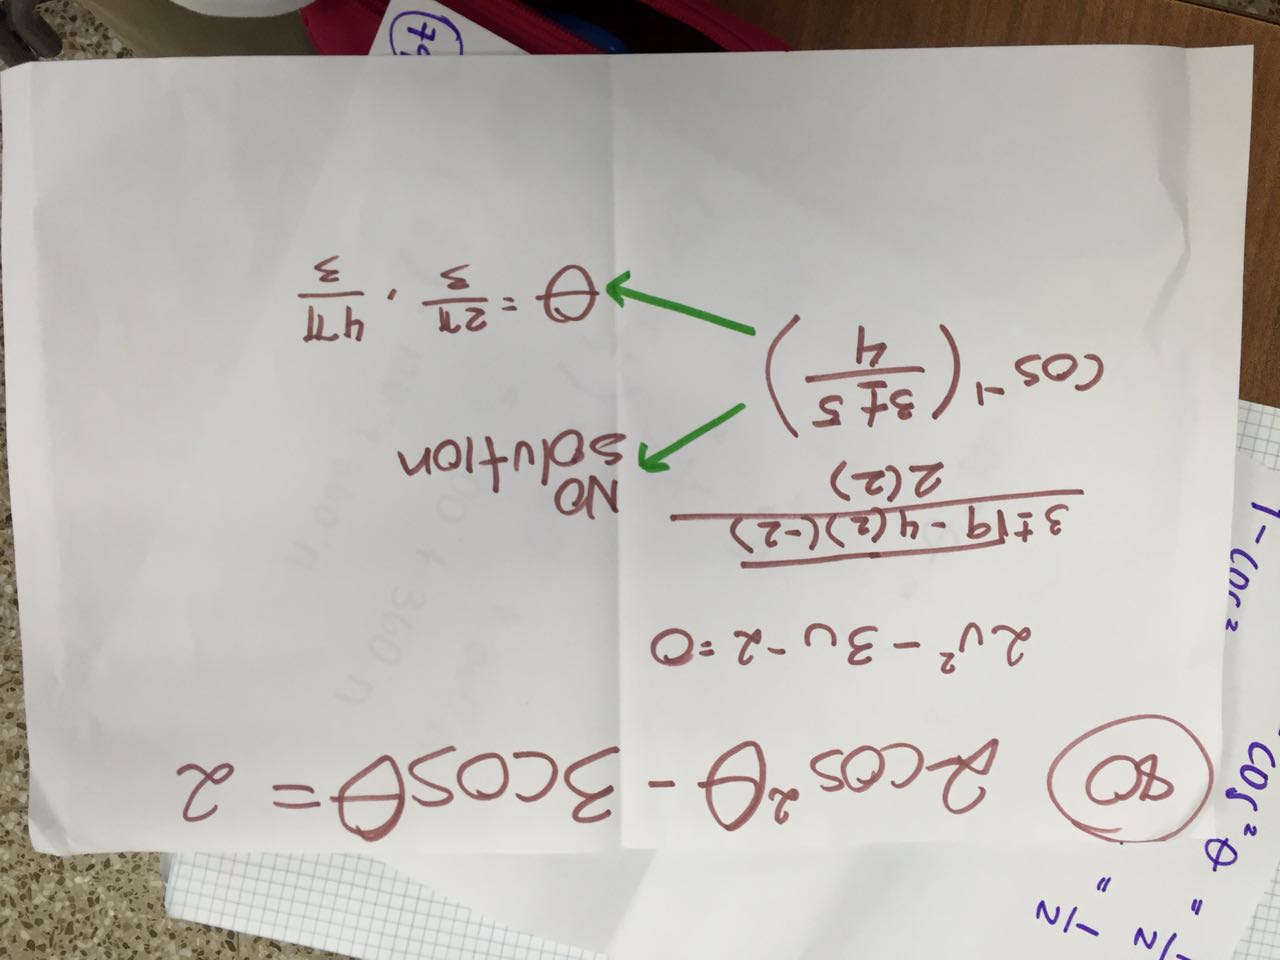 80 2cos²θ - 3cosθ = 2
2u² - 3u - 2 = 0
3 ± √9 - 4(2)(-2)
2(2)
cos⁻¹ (3 ± 5 / 4)
NO
solution
θ = 2π/3 , 4π/3
1 - cos²
cos²θ = 1/2
= 1/2